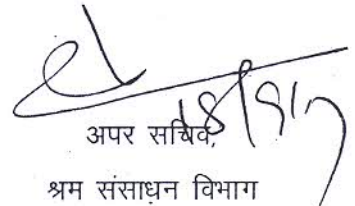 18/9/17
अपर सचिव,
श्रम संसाधन विभाग